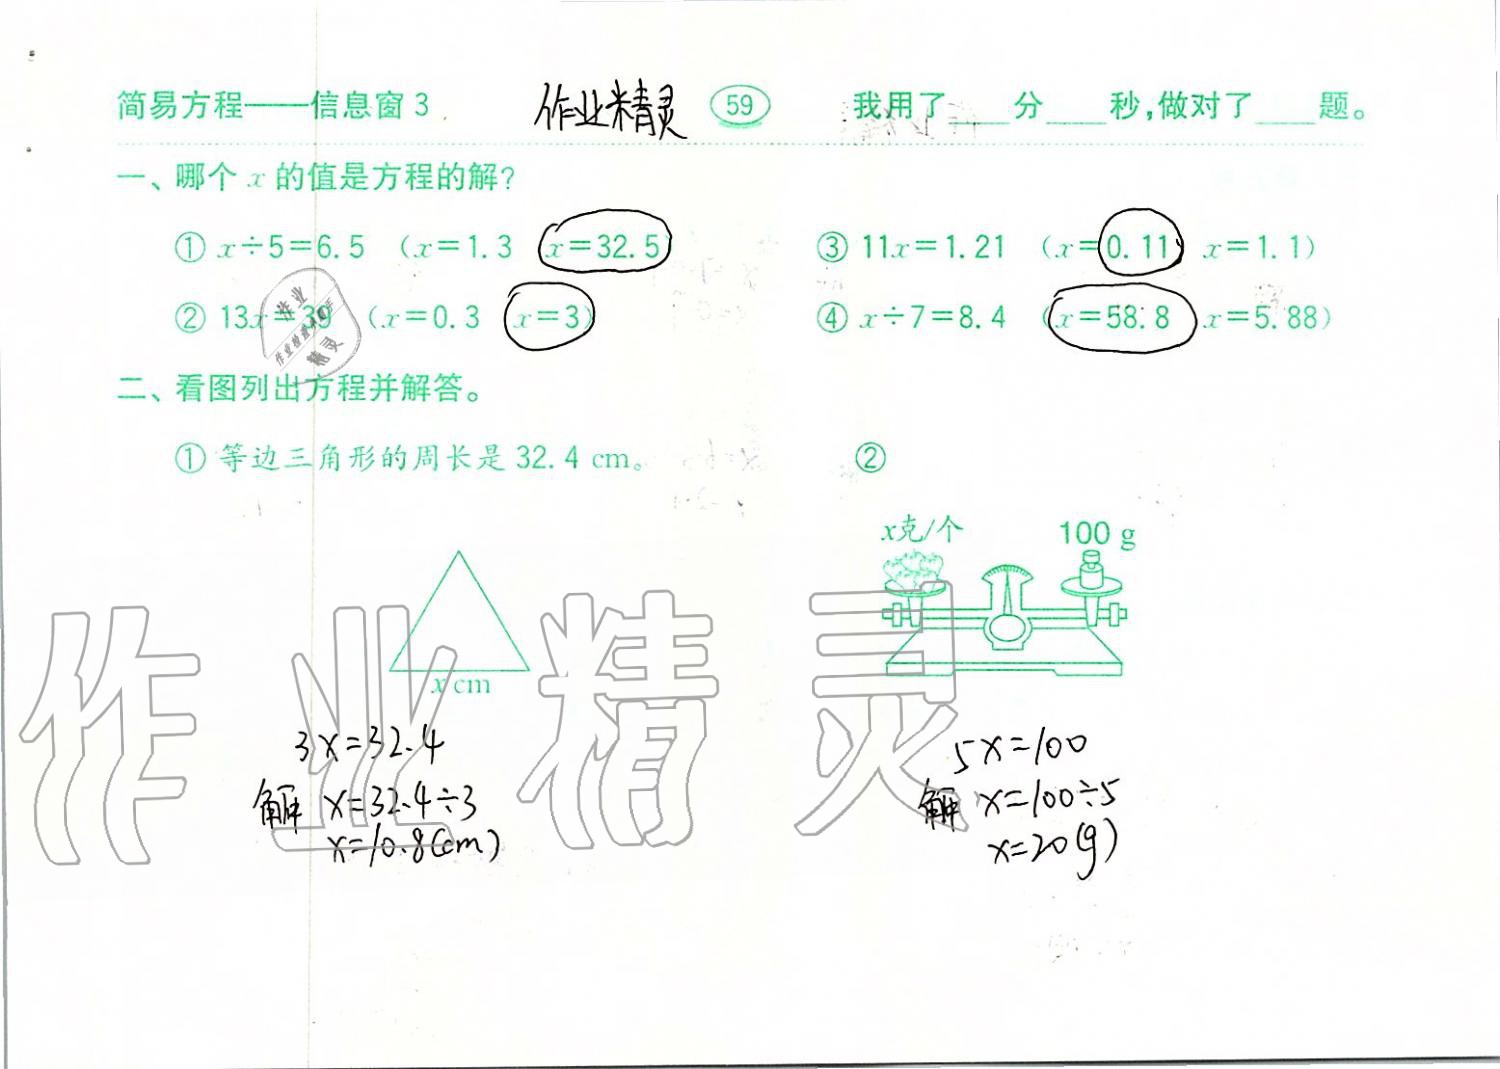 简易方程——信息窗3 作业精灵 59 我用了____分____秒,做对了____题。
一、哪个 x 的值是方程的解?
① x÷5=6.5 (x=1.3 x=32.5) ③ 11x=1.21 (x=0.11 x=1.1)
② 13x=39 (x=0.3 x=3) ④ x÷7=8.4 (x=58.8 x=5.88)
作业
精灵
二、看图列出方程并解答。
① 等边三角形的周长是 32.4 cm。 ②
x克/个 100 g
x cm
作业精灵
3x=32.4 5x=100
解 x=32.4÷3 解 x=100÷5
x=10.8(cm) x=20(g)